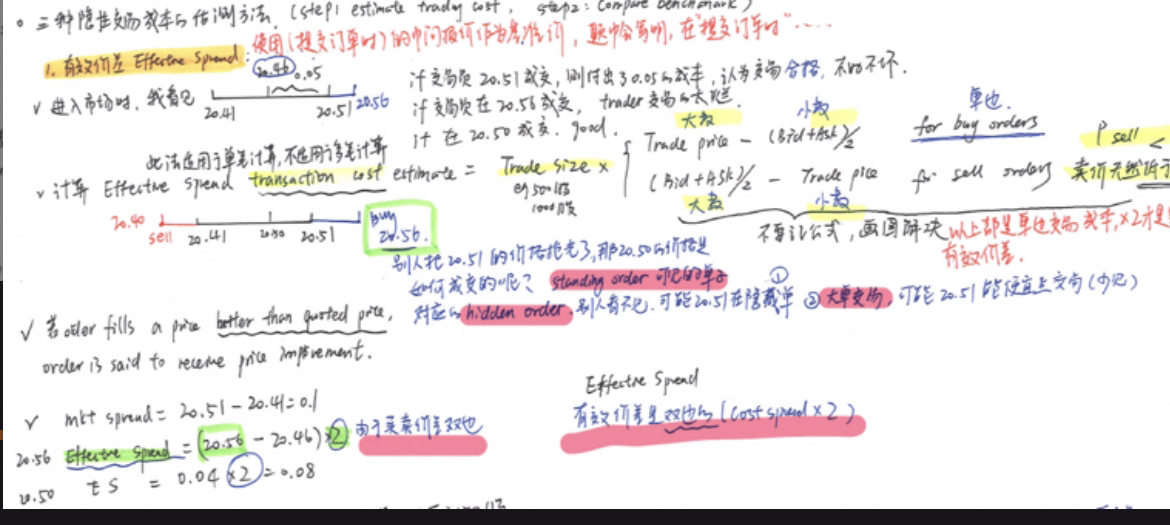 三种隐性交易成本与估测方法. (step1 estimate trading cost, step2: compare benchmark)
1. 有效价差 Effective Spread: 使用(提交订单时)的中间报价作为基准价, 题中会写明, 在"提交订单时"......
20.46 0.05
✓ 进入市场时, 我看见 20.41 20.51 20.56
if 交易员 20.51 成交, 则付出了 0.05 的成本, 认为交易合格, 不好不坏.
if 交易员在 20.56 成交, trader 交易的太
if 在 20.50 成交. good.
此法适用于单笔计算, 不适用于多笔计算
✓ 计算 Effective Spread transaction cost estimate = Trade size ×
eg 500股
1000股
大数 小数 单边.
Trade price - (Bid+Ask)/2 for buy orders P sell <
(Bid+Ask)/2 - Trade price for sell orders 卖价天然低于
大数 小数
不要记公式, 画图解决 以上都是单边交易成本, ×2才是
有效价差.
20.40 sell 20.41 20.50 20.51 buy 20.56.
别人把 20.51 的价格抢光了, 那 20.50 的价格是
如何成交的呢? standing order 可见的单子
对应的 hidden order. 别人看不见. 可能 20.51 有隐藏单 ① ② 大单交易, 可能 20.51 能便宜点交易 (少见)
✓ 若 order fills a price better than quoted price,
order is said to receive price improvement.
✓ mkt spread = 20.51 - 20.41 = 0.1
20.56 Effective Spread = (20.56 - 20.46) × 2 由于买卖价差双边
20.50 E S = 0.04 × 2 = 0.08
Effective Spread
有效价差是双边的 (cost spread × 2)